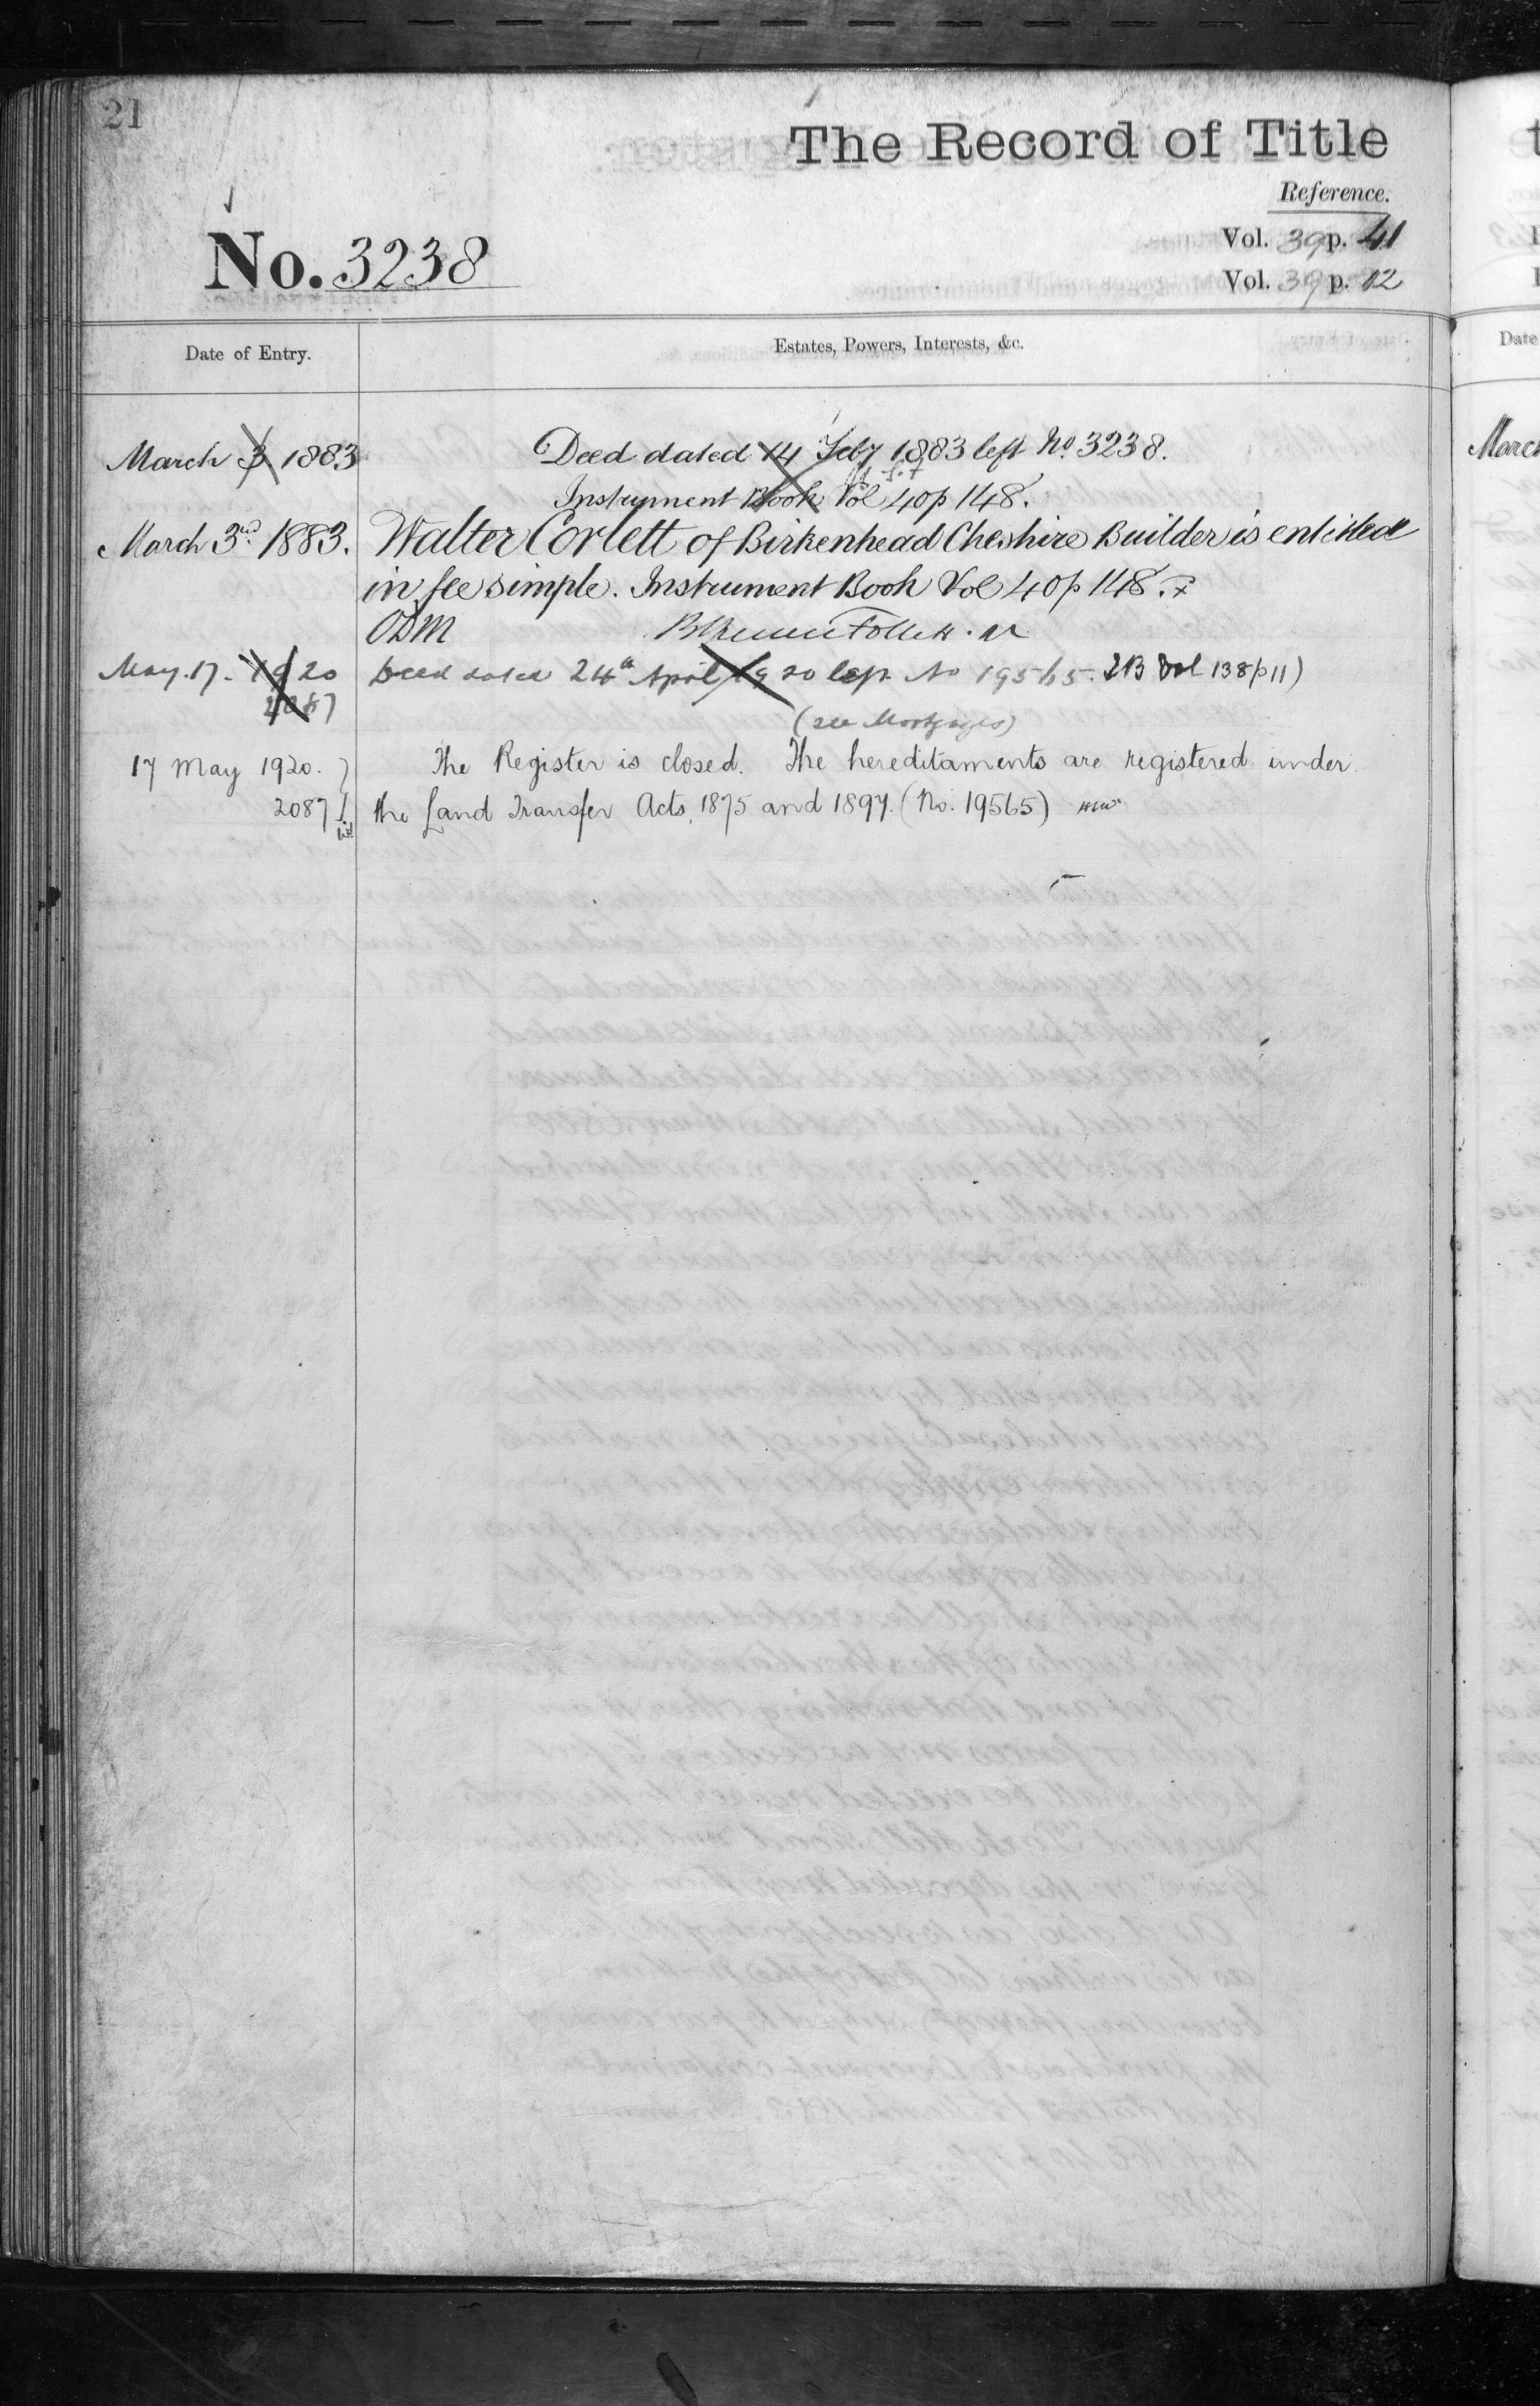 21
The Record of Title
Reference.
Vol. 39 p. 41
No. 3238
Vol. 39 p. 12
Date of Entry.
Estates, Powers, Interests, &c.
March 3 1883
Deed dated 14 Feby 1883 left No 3238.
Instrument Book Vol 40 p 148.
March 3rd 1883.
Walter Corlett of Birkenhead Cheshire Builder is entitled
in fee simple. Instrument Book Vol 40 p 148.
ODM
May. 17. 1920
Deed dated 24th April 1920 left No 19565. IB Vol 138 p 11)
2087
(see Mortgages)
17 May 1920.
The Register is closed. The hereditaments are registered under
2087
the Land Transfer Acts, 1875 and 1897. (No. 19565)